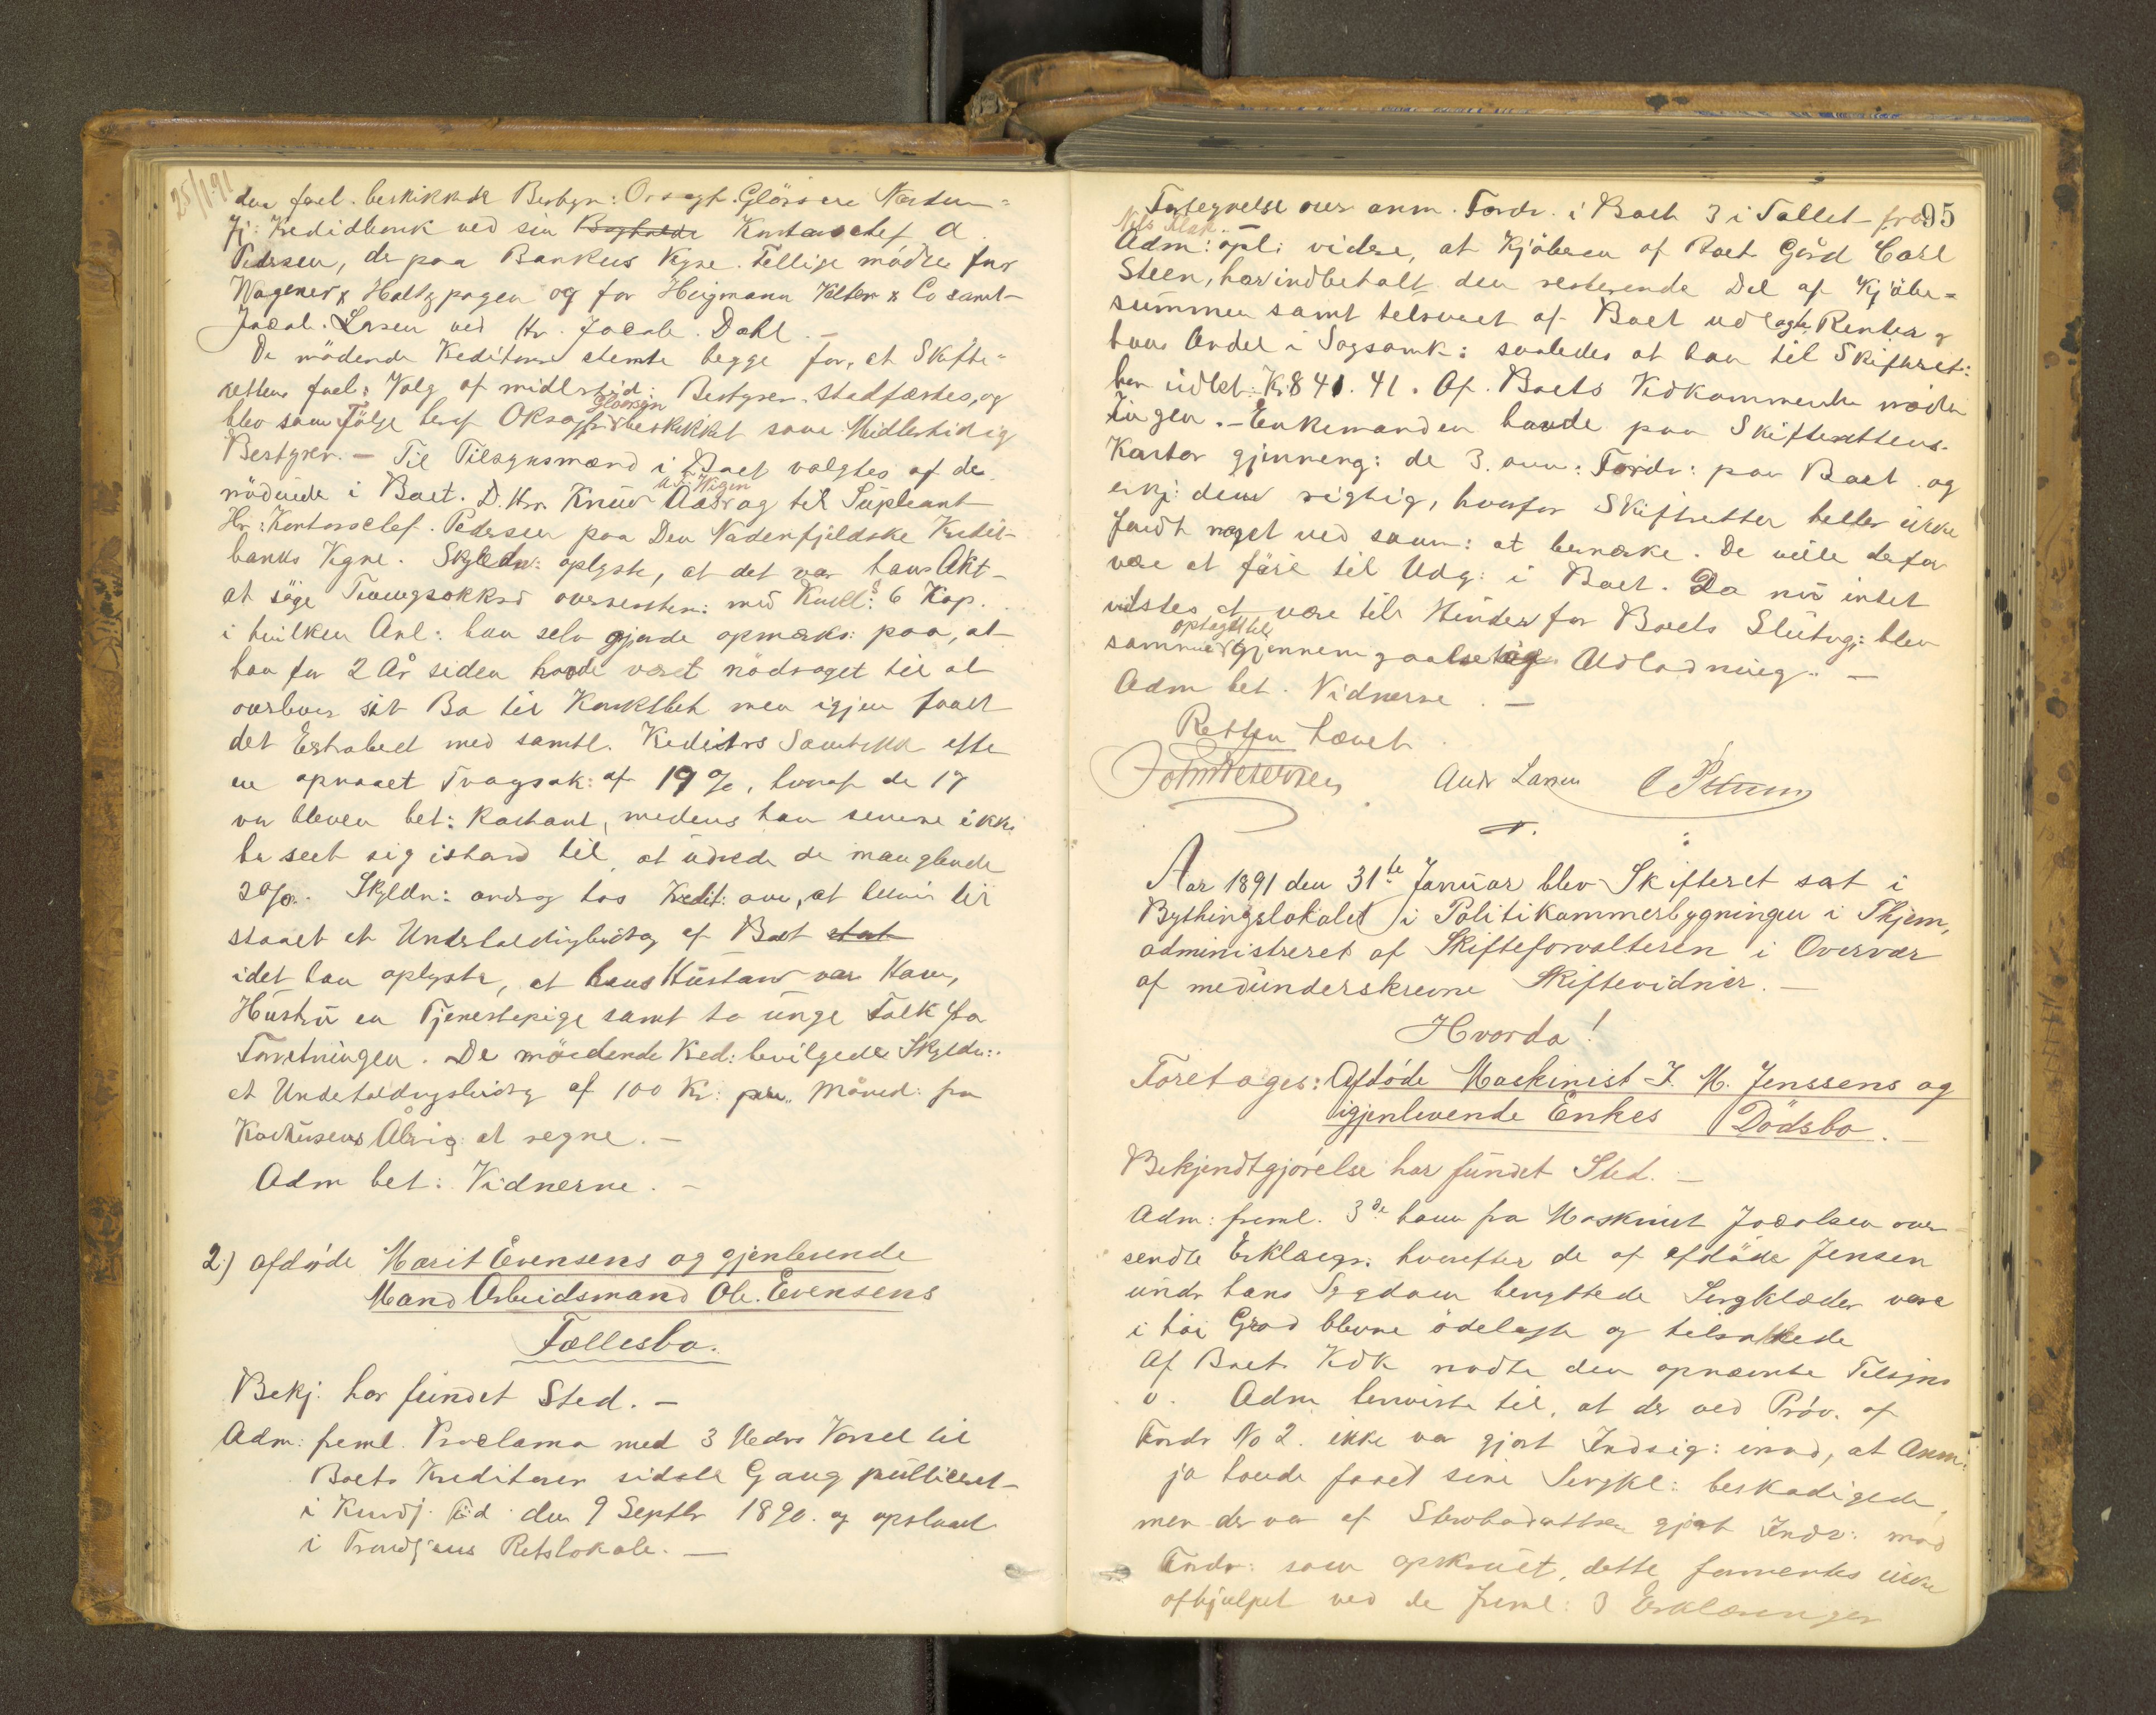 25/1 91
den foel. beskikkede Bestyr: Orsagf. Glörsen Norden=
fj: Kredidbank ved sin Bogholder Kontorschef A.
Pedersen, der paa Bankens Vegne. Tillige mödte for
Wagener & Holtzpagen og for Heigmann Velten & Co samt
Jacob. Larsen ved Hr. Jacob. Dahl. —
De mödende Keditorer stemte begge for, at Skifte=
rettens foel: Valg af midlertid: Bestyrer. stadfæstes, og
Glörsen
blev som Fölge beraf OKrsagf. beskikket som Midlertidig
Bestyrer. — Til Tilsynsmænd i Boet valgtes af de
mödende i Boet. D. Hrr. Knud Aas og til Supleant
Hr: Kontorschef. Pedersen paa Den Nordenfjeldske Kredit-
banks Vegne. Skyldn: oplyste, at det var hans Akt-
at söge Tvangsakkord med Kvall: å 6 Kop.
i hvilken Anl: han selv gjorde opmærks: paa, at
han for 2 År siden havde været nödsaget til at
overlever sit Bo til Konkbeh men igjen faaet
det Extraberet med samtl. Keditors Samtykke efte
en opnaaet Tvagsak: af 19 %, hvoraf de 17
var bleven bet: kontant, medens han senere ikke
ha seet sig istand til at udrede de manglende
2 %. Skyldn: androg hos Kredit: om, at blive til
staaet et Underholdigbidrag af Boet stat
idet han oplyste, at hans Hustand var Ham,
Hustru en Tjenestepige samt to unge Folk fra
Forretningen. De mödende Kred: bevilgede Skyldn:
et Undeholdngsbidrg af 100 Kr: per. Måned: fra
Konkusens Åbnig at regne. —
Adm bet: Vidnerne. —
2) Afdöde Marit Evensens og gjenlevende
Mand Arbeidsmand Ole. Evensens
Fællesbo.
Bekj: har fundet Sted. —
Adm: freml. Proclama med 3 Mdrs Varsel til
Boets Kreditorer sidste Gang publiceret
i Kundj. Tid. den 9 Septbr 1890. og opslaaet
i Trondhjems Retslokale. —
95
Fortegnelse over anm. Fordr. i Boet 3 i Tallet fra
Nils Klak
Adm: opl: videre, at Kjöberen af Boets Gård Carl
Steen, har indbetalt den resterende Del af Kjöbe=
summen samt telsvaret af Boet udlagte Renter og
hans Andel i Sagsomk: saaledes at han til Skifteret:
har indbet: Kr 841. 41. Af Boets Vedkommende mödte
Ingen. — Enkemanden havde paa Skifterettens
Kontor gjenneng: de 3 anm: Fordr: paa Boet og
erkj: dem rigtig, hvorfor Skifteretten heller ikke
fandt noget ved samm: at bemærke. De ville derfor
være at före til Udg: i Boet. Da nu intet
vidstes at være til Hinder for Boets Slutng: blev
optaget til
samme gjennemgaaelse og Udlodning. —
Adm bet. Vidnerne. —
Retten hævet.
John Petersen Andr Larsen C Petersen
Aar 1891 den 31te Januar blev Skifteret sat i
Bythingslokalet i Politikammerbygningen i Thjem,
administreret af Skifteforvalteren i Overvær
af medunderskrevne Skiftevidner. —
Hvorda!
Foretoges: Afdöde Maskinist J. M. Jenssens og
igjenlevende Enkes Dödsbo. —
Bekjendtgjörelse har fundet Sted. —
Adm: freml. 3de ham fra Maskinist Jacobsen over
sendte Erklærgr. hvorefter de af afdöde Jensen
undr hans Sygdom benyttede Sengklæder vare
i höi Grad blevne ödelagte og tilsmudsede
Af Boets Vdk mödte den opnævnte Tilsyns
v. Adm henviste til, at der ved Pröv. af
Fordr No 2. ikke var gjort Indsig: imod, at Anm:
jo havde faaet sine Sengkl: beskadigede,
men der var af Skerbodrettsen gjort Indv: mod
Fordr: som opskruet, dette formentes ikke
afhjulpet ved de freml: 3 Erklæringer